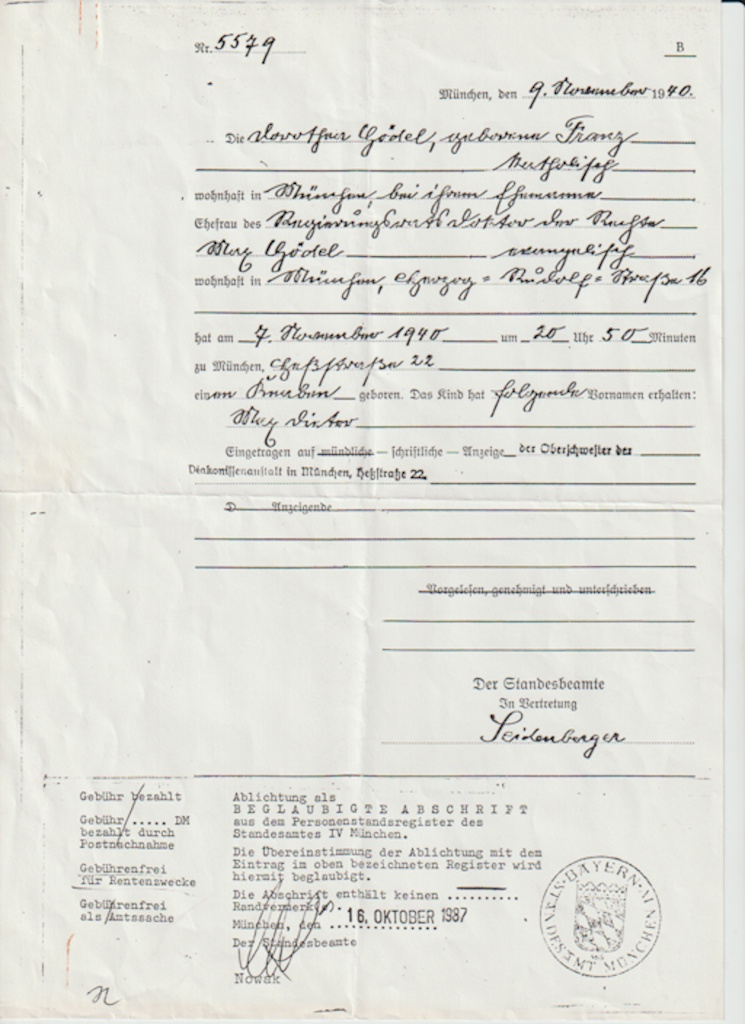 Nr. 5579
B
München, den 9. November 1940.
Die Dorothea Gödel, geborene Franz
katholisch
wohnhaft in München, bei ihrem Ehemanne
Ehefrau des Regierungsrats Doktor der Rechte
Max Gödel evangelisch
wohnhaft in München, Herzog = Rudolf = Straße 16
hat am 7. November 1940 um 20 Uhr 50 Minuten
zu München, Heßstraße 22
einen Knaben geboren. Das Kind hat folgende Vornamen erhalten:
Max Dieter
Eingetragen auf mündliche – schriftliche – Anzeige der Oberschwester der
Diakonissenanstalt in München, Heßstraße 22.
D Anzeigende
Vorgelesen, genehmigt und unterschrieben
Der Standesbeamte
In Vertretung
Seidenberger
Gebühr bezahlt
Gebühr ..... DM
bezahlt durch
Postnachnahme
Gebührenfrei
für Rentenzwecke
Gebührenfrei
als Amtssache
Ablichtung als
BEGLAUBIGTE ABSCHRIFT
aus dem Personenstandsregister des
Standesamtes IV München.
Die Übereinstimmung der Ablichtung mit dem
Eintrag im oben bezeichneten Register wird
hiermit beglaubigt.
Die Abschrift enthält keinen ..........
Randvermerk(e).
München, den 16. OKTOBER 1987
Der Standesbeamte
Nowak
BAYERN
STANDESAMT MÜNCHEN